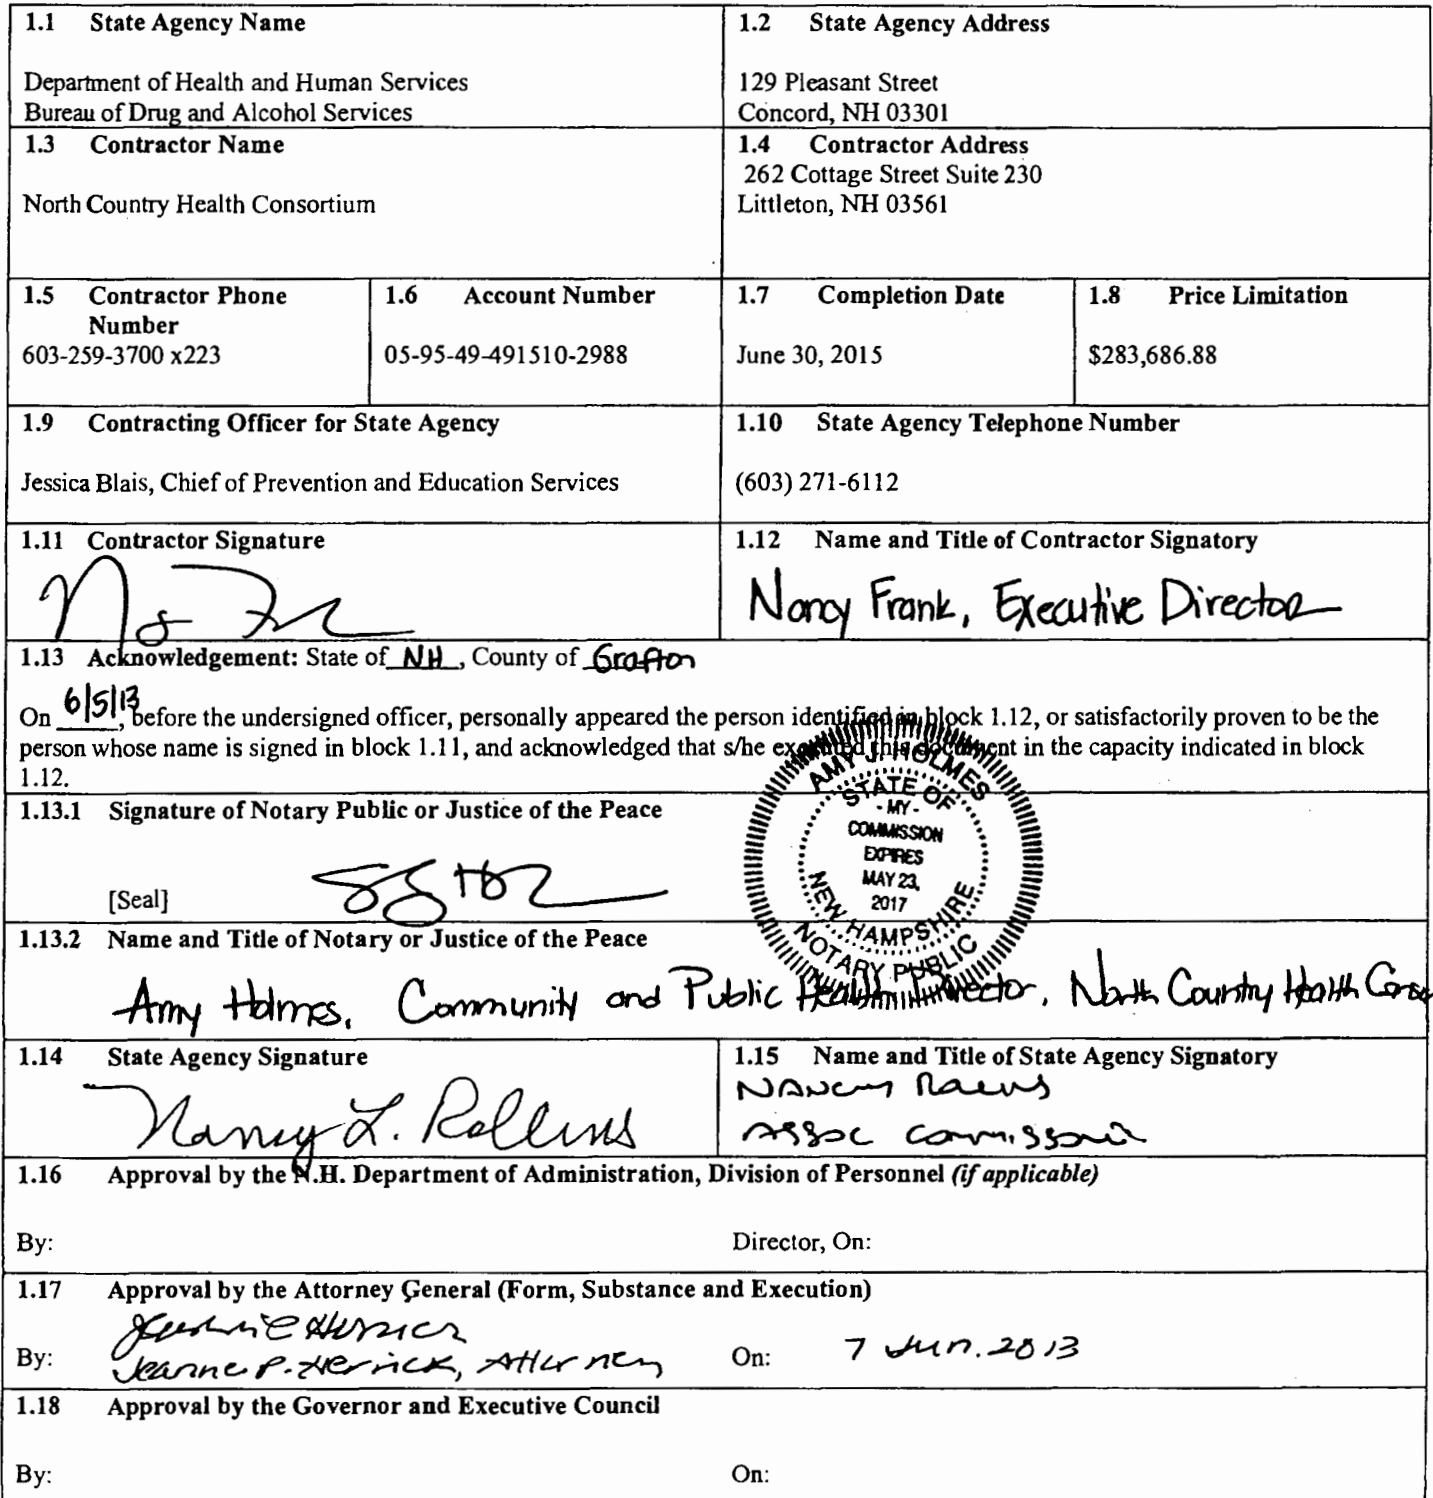 1.1 State Agency Name
Department of Health and Human Services
Bureau of Drug and Alcohol Services
1.2 State Agency Address
129 Pleasant Street
Concord, NH 03301
1.3 Contractor Name
North Country Health Consortium
1.4 Contractor Address
262 Cottage Street Suite 230
Littleton, NH 03561
1.5 Contractor Phone
Number
603-259-3700 x223
1.6 Account Number
05-95-49-491510-2988
1.7 Completion Date
June 30, 2015
1.8 Price Limitation
$283,686.88
1.9 Contracting Officer for State Agency
Jessica Blais, Chief of Prevention and Education Services
1.10 State Agency Telephone Number
(603) 271-6112
1.11 Contractor Signature
1.12 Name and Title of Contractor Signatory
Nancy Frank, Executive Director
1.13 Acknowledgement: State of NH, County of Grafton
On 6/5/13, before the undersigned officer, personally appeared the person identified in block 1.12, or satisfactorily proven to be the
person whose name is signed in block 1.11, and acknowledged that s/he executed this document in the capacity indicated in block
1.12.
1.13.1 Signature of Notary Public or Justice of the Peace
[Seal]
AMY J. HOLMES
STATE OF
- MY -
COMMISSION
EXPIRES
MAY 23,
2017
NEW HAMPSHIRE
NOTARY PUBLIC
1.13.2 Name and Title of Notary or Justice of the Peace
Amy Holmes, Community and Public Health Director, North County Health Conso
1.14 State Agency Signature
Nancy L. Rollins
1.15 Name and Title of State Agency Signatory
Nancy Rollins
Assoc Commissioner
1.16 Approval by the N.H. Department of Administration, Division of Personnel (if applicable)
By:
Director, On:
1.17 Approval by the Attorney General (Form, Substance and Execution)
By: Jeanne P. Herrick, Attorney
On: 7 Jun. 2013
1.18 Approval by the Governor and Executive Council
By:
On: